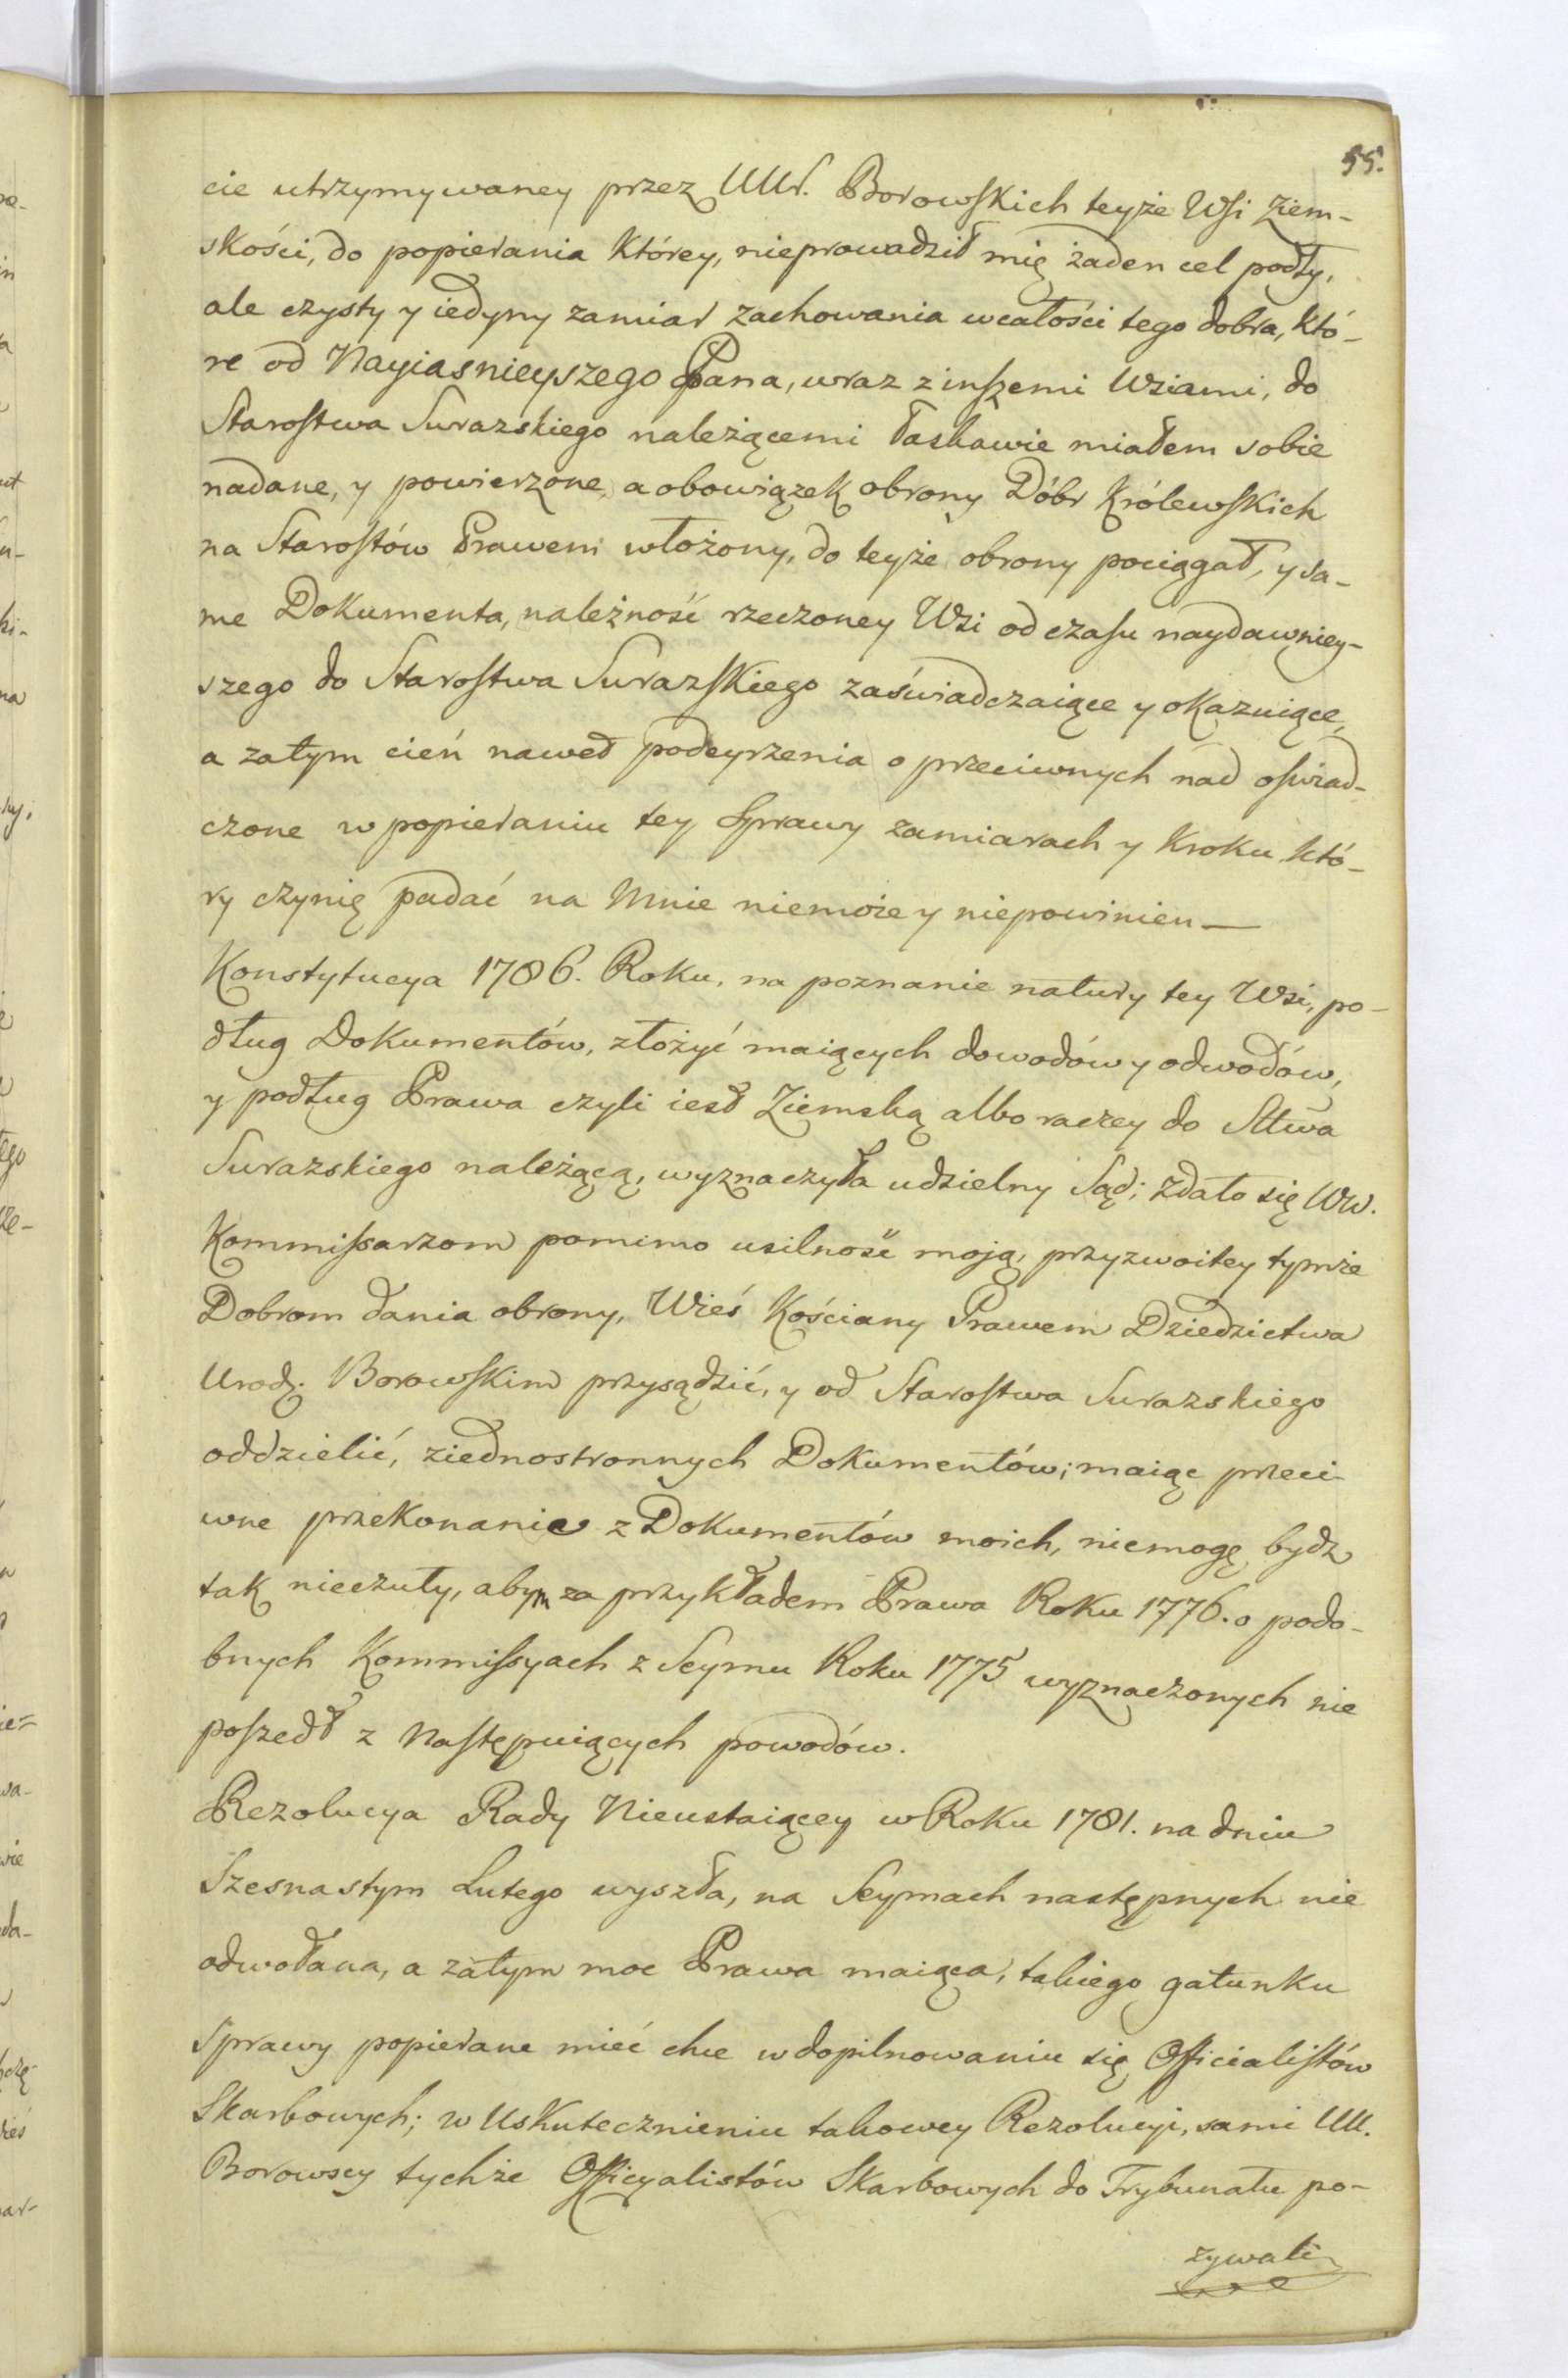 55.
cie utrzymywaney przez UUr. Borowskich teyże Wsi Ziem-
skości, do popierania którey, nieprowadził mię żaden cel podły,
ale czysty y iedyny zamiar zachowania wcałości tego dobra, któ-
re od Nayiasnieyszego Pana, wraz z inszemi Wsiami, do
Starostwa Surazskiego należącemi łaskawie miałem sobie
nadane, y powierzone, a obowiązek obrony Dóbr Królewskich
na Starostów Prawem włożony, do teyże obrony pociągał, y sa-
me Dokumenta, należność rzeczoney Wsi od czasu naydawniey-
szego do Starostwa Surazskiego zaświadczaiące y okazuiące,
a zatym cień nawet podeyrzenia o przeciwnych nad oświad-
czone w popieraniu tey Sprawy zamiarach y Kroku któ-
ry czynię padać na Mnie niemoże y niepowinien —
Konstytucya 1786. Roku, na poznanie natury tey Wsi, po-
dług Dokumentów, złożyć maiących dowodów y odwodów,
y podług Prawa czyli iest Ziemską albo raczey do Sttwa
Surazskiego należącą, wyznaczyła udzielny Sąd; zdało się WW.
Kommissarzom pomimo usilność moją, przyzwoitey tymże
Dobrom dania obrony, Wieś Kościany Prawem Dziedzictwa
Urodz. Borowskim przysądzić, y od Starostwa Surazskiego
oddzielić, ziednostronnych Dokumentów; maiąc przeci-
wne przekonanie z Dokumentów moich, niemogę bydz
tak nieczuły, abym za przykładem Prawa Roku 1776. o podo-
bnych Kommissyach z Seymu Roku 1775 wyznaczonych nie
poszedł z Następuiących powodów.
Rezolucya Rady Nieustaiącey w Roku 1781. na dniu
Szesnastym Lutego wyszła, na Seymach następnych nie
odwołana, a zatym moc Prawa maiąca, takiego gatunku
sprawy popierane mieć chce w dopilnowaniu się Officialistów
Skarbowych; w Uskutecznieniu takowey Rezolucyi, sami UU.
Borowscy tychże Officyalistów Skarbowych do Trybunału po-
zywali